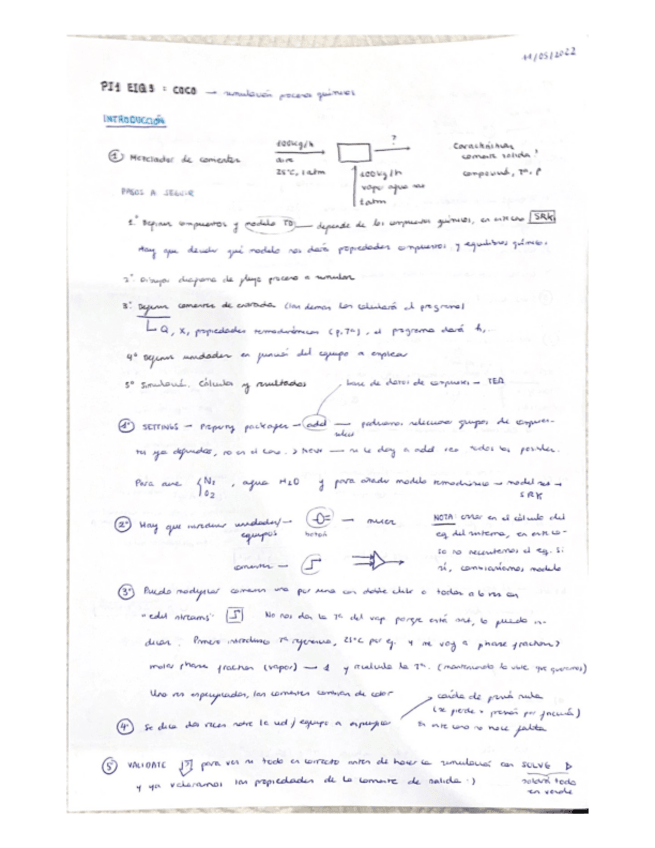 11/05/2022
PI1 EIQ3 : COCO → simulación procesos químicos
INTRODUCCIÓN
① Mezclador de corrientes
600kg/h
aire
25°C, 1 atm
?
100kg/h
vapor agua
1 atm
Características
corriente salida?
compound, Tª, P
PASOS A SEGUIR
1.º Definir compuestos y modelo TD: depende de los compuestos químicos, en este caso SRK
Hay que decidir qué modelo nos dará propiedades compuestos y equilibrios químicos.
2º Dibujar diagrama de flujo proceso a simular
3º Definir corrientes de entrada (las demás las calculará el programa)
Q, x, propiedades termodinámicas (p, Tª), el programa dará h,..
4º Definir unidades en función del equipo a emplear
5º Simulación. Cálculos y resultados
base de datos de compuestos - TEA
1º SETTINGS - Property packages - add - podríamos seleccionar grupos de compues-
select
tos ya definidos, no es el caso. → New — se le da a add y veo todos los posibles.
Para aire { N2 , agua H2O y para añadir modelo termodinámico → model set →
O2
SRK
2º Hay que introducir unidades/
equipos
— mixer
botón
corrientes -
NOTA: en el cálculo del
eq. del sistema, en este ca-
so no necesitamos el eq. Si
sí, cambiaríamos modelo
3º Puedo modificar corrientes una por una con doble click o todas a la vez en
"edit streams" No nos dan la Tª del vap. porque está sat, lo puedo in-
dicar. Primero introduzco Tª referencia, 25°C por ej. y me voy a phase fraction >
molar phase fraction (vapor) — 1 y recalcula la Tª. (manteniendo lo que queramos)
Una vez especificadas, las corrientes cambian de color
caída de presión nula
(se pierde presión por fricción)
En este caso no hace falta
4º Se clica dos veces sobre la ud/equipo a especificar
5º VALIDATE para ver si todo es correcto antes de hacer la simulación con SOLVE ▷
y ya valoramos las propiedades de la corriente de salida :)
saldrá todo
en verde